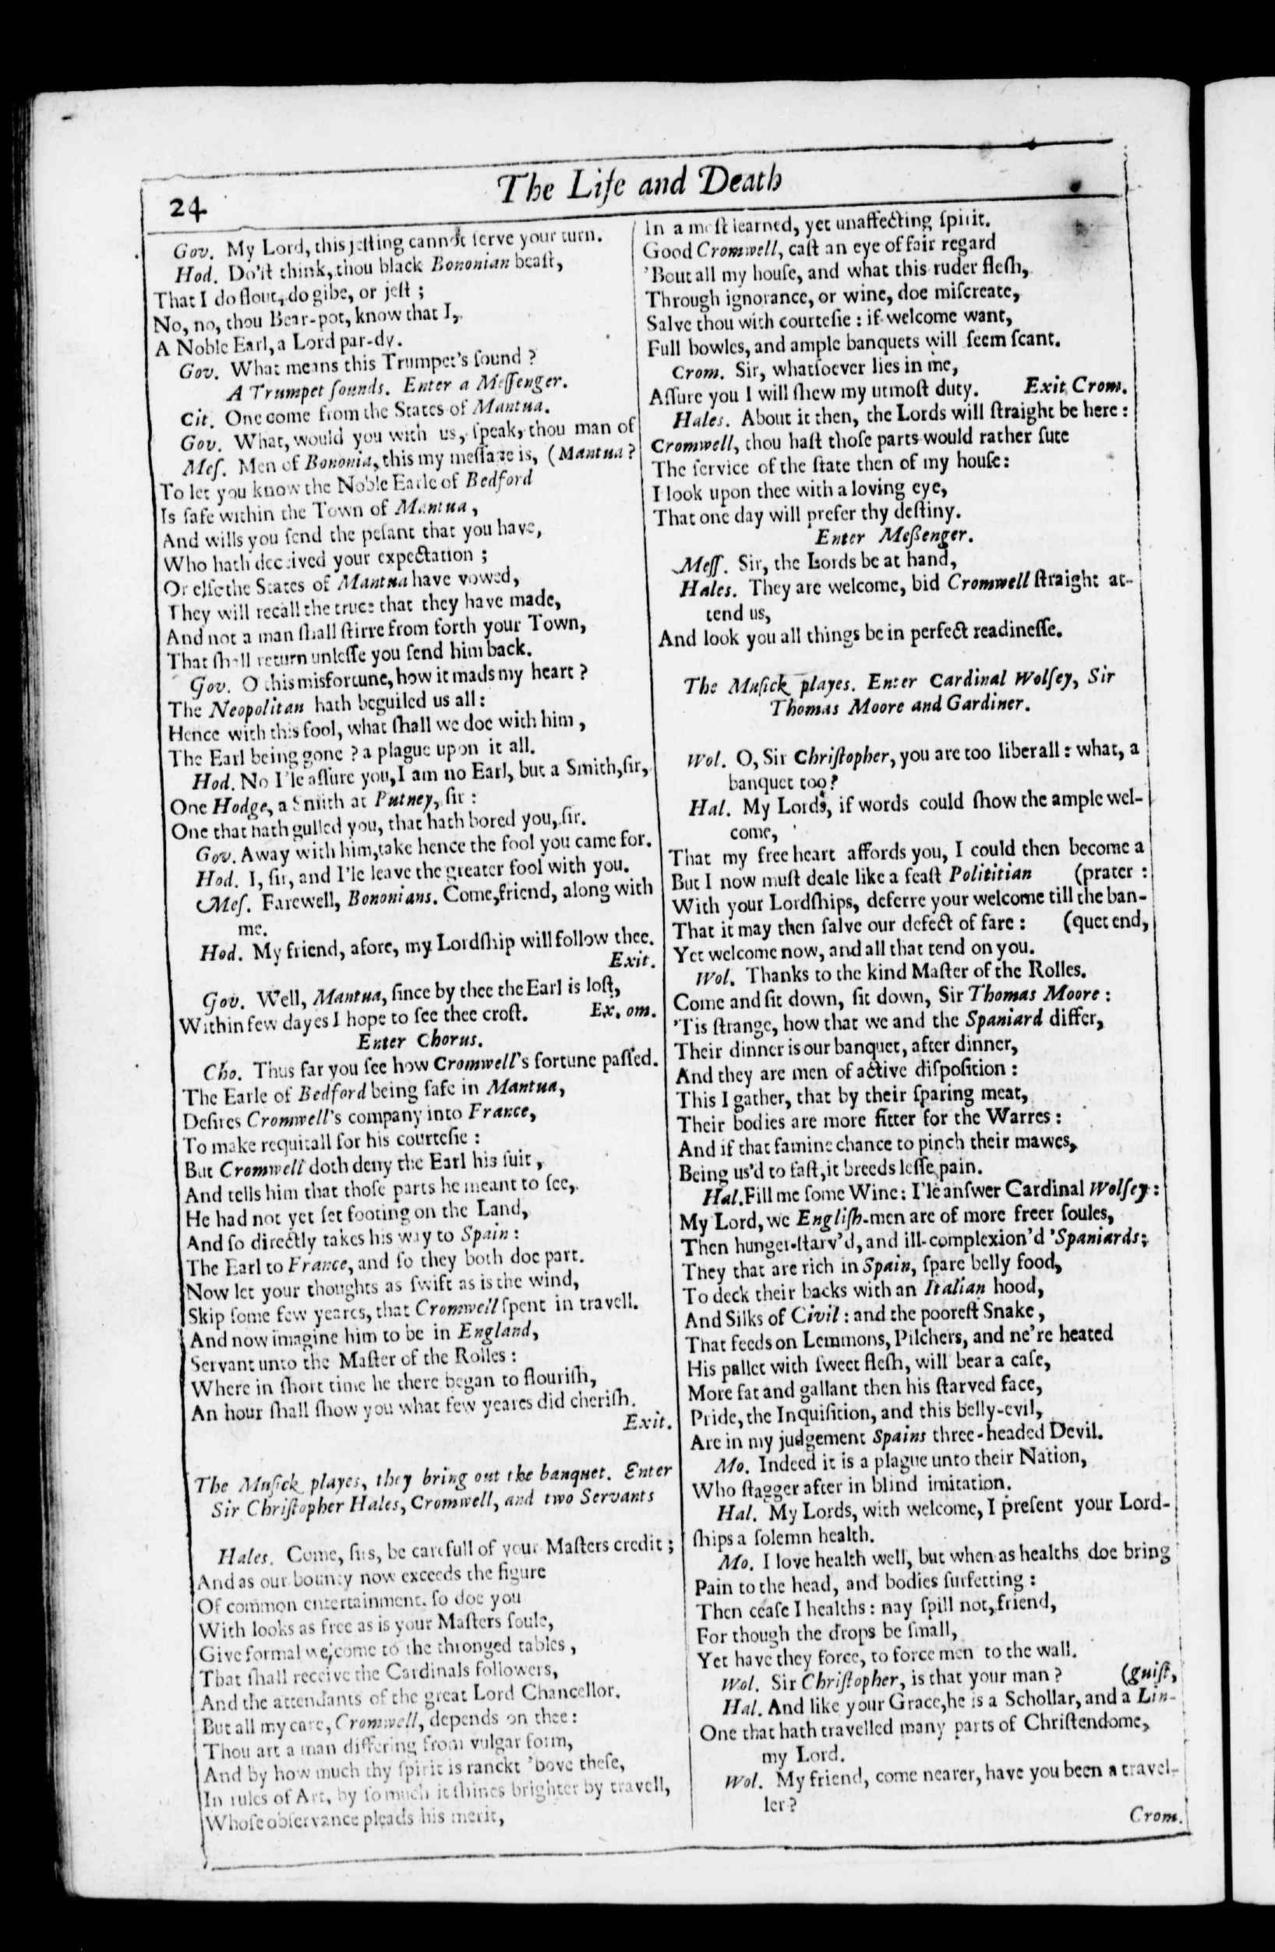 24
The Life and Death
Gov. My Lord, this jesting cannot serve your turn.
Hod. Do'st think, thou black Bononian beast,
That I do flout, do gibe, or jest ;
No, no, thou Bear-pot, know that I,
A Noble Earl, a Lord par-dy.
Gov. What means this Trumpet's sound ?
A Trumpet sounds. Enter a Messenger.
Cit. One come from the States of Mantua.
Gov. What, would you with us, speak, thou man of
Mes. Men of Bononia, this my message is, (Mantua ?
To let you know the Noble Earle of Bedford
Is safe within the Town of Mantua,
And wills you send the pesant that you have,
Who hath deceived your expectation ;
Or else the States of Mantua have vowed,
They will recall the truce that they have made,
And not a man shall stirre from forth your Town,
That shall return unlesse you send him back.
Gov. O this misfortune, how it mads my heart ?
The Neopolitan hath beguiled us all :
Hence with this fool, what shall we doe with him,
The Earl being gone ? a plague upon it all.
Hod. No I'le assure you, I am no Earl, but a Smith, sir,
One Hodge, a Smith at Putney, sir :
One that hath gulled you, that hath bored you, sir.
Gov. Away with him, take hence the fool you came for.
Hod. I, sir, and I'le leave the greater fool with you.
Mes. Farewell, Bononians. Come, friend, along with
me.
Hod. My friend, afore, my Lordship will follow thee.
Exit.
Gov. Well, Mantua, since by thee the Earl is lost,
Within few dayes I hope to see thee crost. Ex. om.
Enter Chorus.
Cho. Thus far you see how Cromwell's fortune passed.
The Earle of Bedford being safe in Mantua,
Desires Cromwell's company into France,
To make requitall for his courtesie :
But Cromwell doth deny the Earl his suit,
And tells him that those parts he meant to see,
He had not yet set footing on the Land,
And so directly takes his way to Spain :
The Earl to France, and so they both doe part.
Now let your thoughts as swift as is the wind,
Skip some few yeares, that Cromwell spent in travell.
And now imagine him to be in England,
Servant unto the Master of the Rolles :
Where in short time he there began to flourish,
An hour shall show you what few yeares did cherish.
Exit.
The Musick playes, they bring out the banquet. Enter
Sir Christopher Hales, Cromwell, and two Servants
Hales. Come, sirs, be carefull of your Masters credit ;
And as our bounty now exceeds the figure
Of common entertainment, so doe you
With looks as free as is your Masters soule,
Give formal welcome to the thronged tables,
That shall receive the Cardinals followers,
And the attendants of the great Lord Chancellor.
But all my care, Cromwell, depends on thee :
Thou art a man differing from vulgar form,
And by how much thy spirit is ranckt 'bove these,
In rules of Art, by so much it shines brighter by travell,
Whose observance pleads his merit,
In a most learned, yet unaffecting spirit.
Good Cromwell, cast an eye of fair regard
'Bout all my house, and what this ruder flesh,
Through ignorance, or wine, doe miscreate,
Salve thou with courtesie : if welcome want,
Full bowles, and ample banquets will seem scant.
Crom. Sir, whatsoever lies in me,
Assure you I will shew my utmost duty. Exit Crom.
Hales. About it then, the Lords will straight be here :
Cromwell, thou hast those parts would rather sute
The service of the state then of my house :
I look upon thee with a loving eye,
That one day will prefer thy destiny.
Enter Messenger.
Mess. Sir, the Lords be at hand,
Hales. They are welcome, bid Cromwell straight at-
tend us,
And look you all things be in perfect readinesse.
The Musick playes. Enter Cardinal Wolsey, Sir
Thomas Moore and Gardiner.
Wol. O, Sir Christopher, you are too liberall : what, a
banquet too ?
Hal. My Lords, if words could show the ample wel-
come,
That my free heart affords you, I could then become a
But I now must deale like a feast Polititian (prater :
With your Lordships, deferre your welcome till the ban-
That it may then salve our defect of fare : (quet end,
Yet welcome now, and all that tend on you.
Wol. Thanks to the kind Master of the Rolles.
Come and sit down, sit down, Sir Thomas Moore :
'Tis strange, how that we and the Spaniard differ,
Their dinner is our banquet, after dinner,
And they are men of active disposition :
This I gather, that by their sparing meat,
Their bodies are more fitter for the Warres :
And if that famine chance to pinch their mawes,
Being us'd to fast, it breeds lesse pain.
Hal. Fill me some Wine : I'le answer Cardinal Wolsey :
My Lord, we English-men are of more freer soules,
Then hunger-starv'd, and ill-complexion'd 'Spaniards;
They that are rich in Spain, spare belly food,
To deck their backs with an Italian hood,
And Silks of Civil : and the poorest Snake,
That feeds on Lemmons, Pilchers, and ne're heated
His pallet with sweet flesh, will bear a case,
More fat and gallant then his starved face,
Pride, the Inquisition, and this belly-evil,
Are in my judgement Spains three-headed Devil.
Mo. Indeed it is a plague unto their Nation,
Who stagger after in blind imitation.
Hal. My Lords, with welcome, I present your Lord-
ships a solemn health.
Mo. I love health well, but when as healths doe bring
Pain to the head, and bodies surfetting :
Then cease I healths : nay spill not, friend,
For though the drops be small,
Yet have they force, to force men to the wall.
Wol. Sir Christopher, is that your man ? (guist,
Hal. And like your Grace, he is a Schollar, and a Lin-
One that hath travelled many parts of Christendome,
my Lord.
Wol. My friend, come nearer, have you been a travel-
ler ?
Crom.